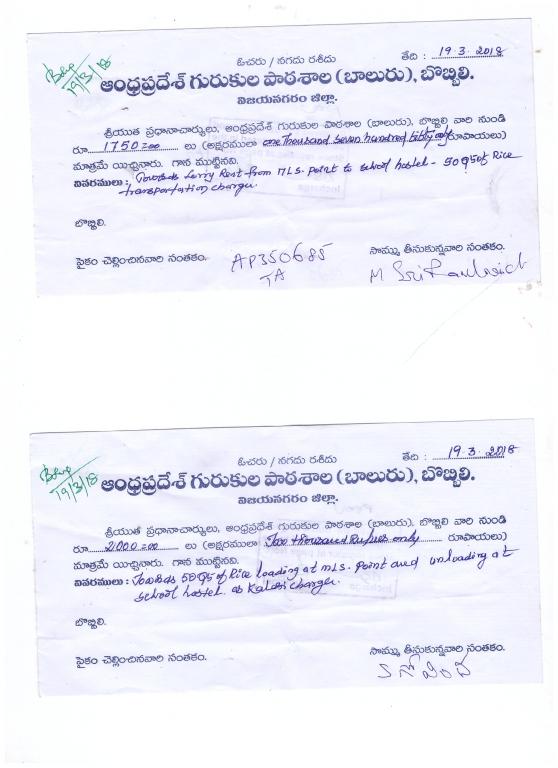 ఓచరు / నగదు రశీదు
తేది : 19.3.2018
19/3/18
ఆంధ్రప్రదేశ్ గురుకుల పాఠశాల (బాలురు), బొబ్బిలి.
విజయనగరం జిల్లా.
శ్రీయుత ప్రధానాచార్యులు, ఆంధ్రప్రదేశ్ గురుకుల పాఠశాల (బాలురు), బొబ్బిలి వారి నుండి
రూ 1750=00 లు (అక్షరములా one Thousand Seven hundred fifty only రూపాయలు)
మాత్రమే యిచ్చినారు. గాన ముట్టినవి.
వివరములు : Towards Lorry Rent from MLS. point to school hostel - 50 Qts of Rice
transportation charges.
బొబ్బిలి.
పైకం చెల్లించినవారి సంతకం.
సొమ్ము తీసుకున్నవారి సంతకం.
AP350685
TA
M Sri
ఓచరు / నగదు రశీదు
తేది : 19.3.2018
19/3/18
ఆంధ్రప్రదేశ్ గురుకుల పాఠశాల (బాలురు), బొబ్బిలి.
విజయనగరం జిల్లా.
శ్రీయుత ప్రధానాచార్యులు, ఆంధ్రప్రదేశ్ గురుకుల పాఠశాల (బాలురు), బొబ్బిలి వారి నుండి
రూ 2000=00 లు (అక్షరములా Two thousand Rupees only రూపాయలు)
మాత్రమే యిచ్చినారు. గాన ముట్టినవి.
వివరములు : Towards 50 Qts of Rice loading at MLS. Point and unloading at
school hostel as Kalasi charges.
బొబ్బిలి.
పైకం చెల్లించినవారి సంతకం.
సొమ్ము తీసుకున్నవారి సంతకం.
S గోవింద